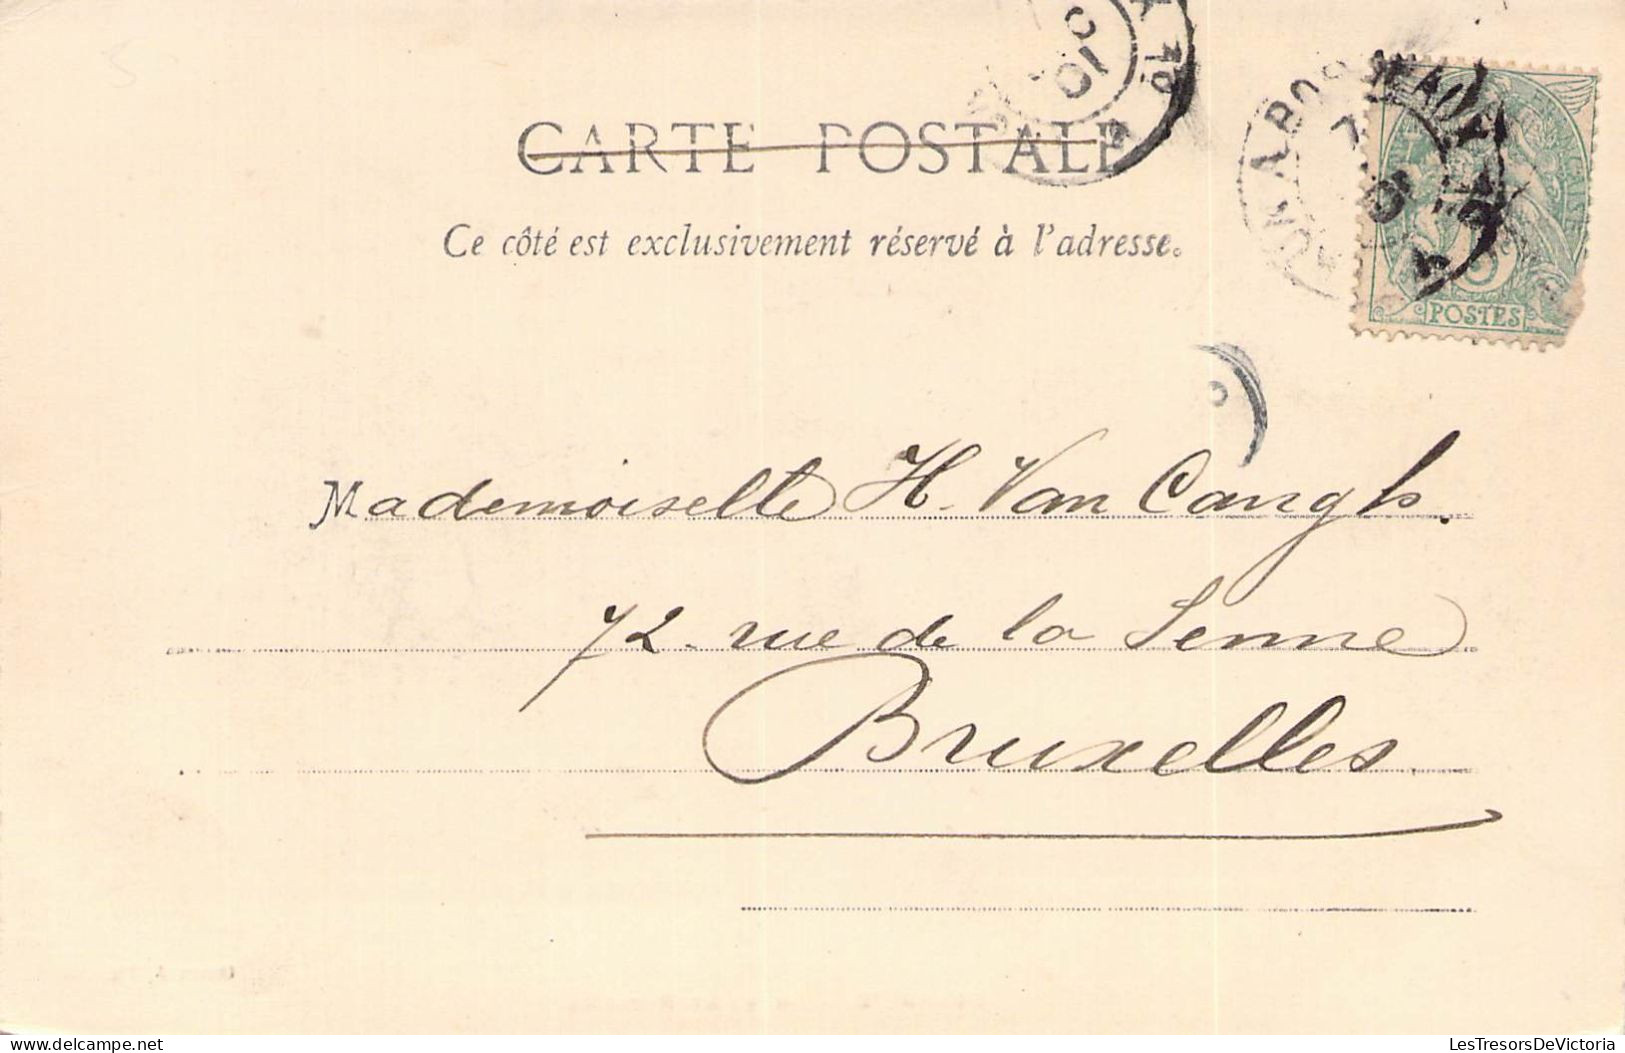 CARTE POSTALE
Ce côté est exclusivement réservé à l'adresse.
POSTES
Mademoiselle H. Van Cangh.
72 rue de la Senne
Bruxelles
LesTresorsDeVictoria